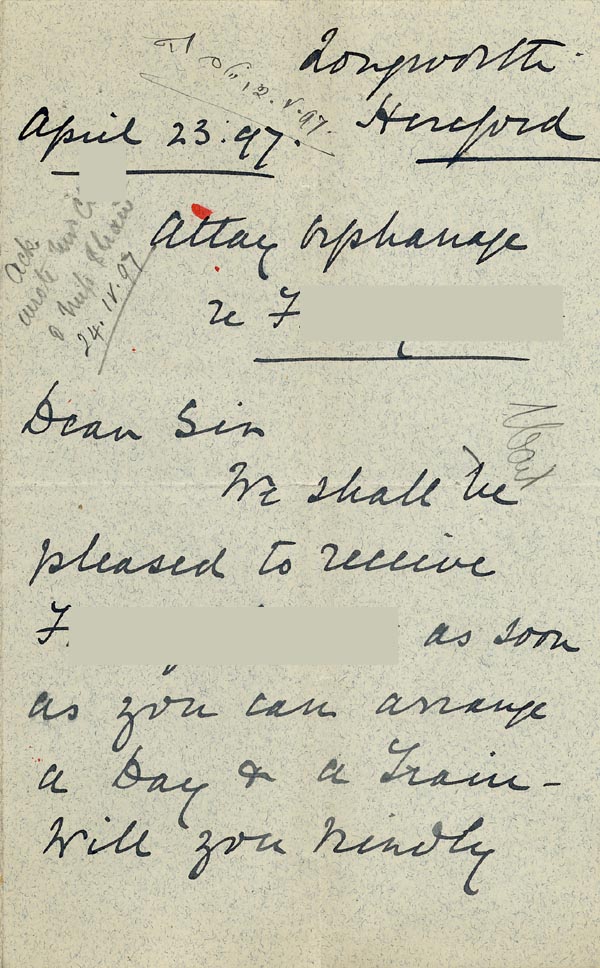 Longworth
Hereford
April 23.97.
12.V.97.
Ack
wrote
Miss Shaw
24.IV.97
Attay Orphanage
re F
Dear Sir
We shall be
pleased to receive
F. as soon
as you can arrange
a Day & a Train -
Will you kindly